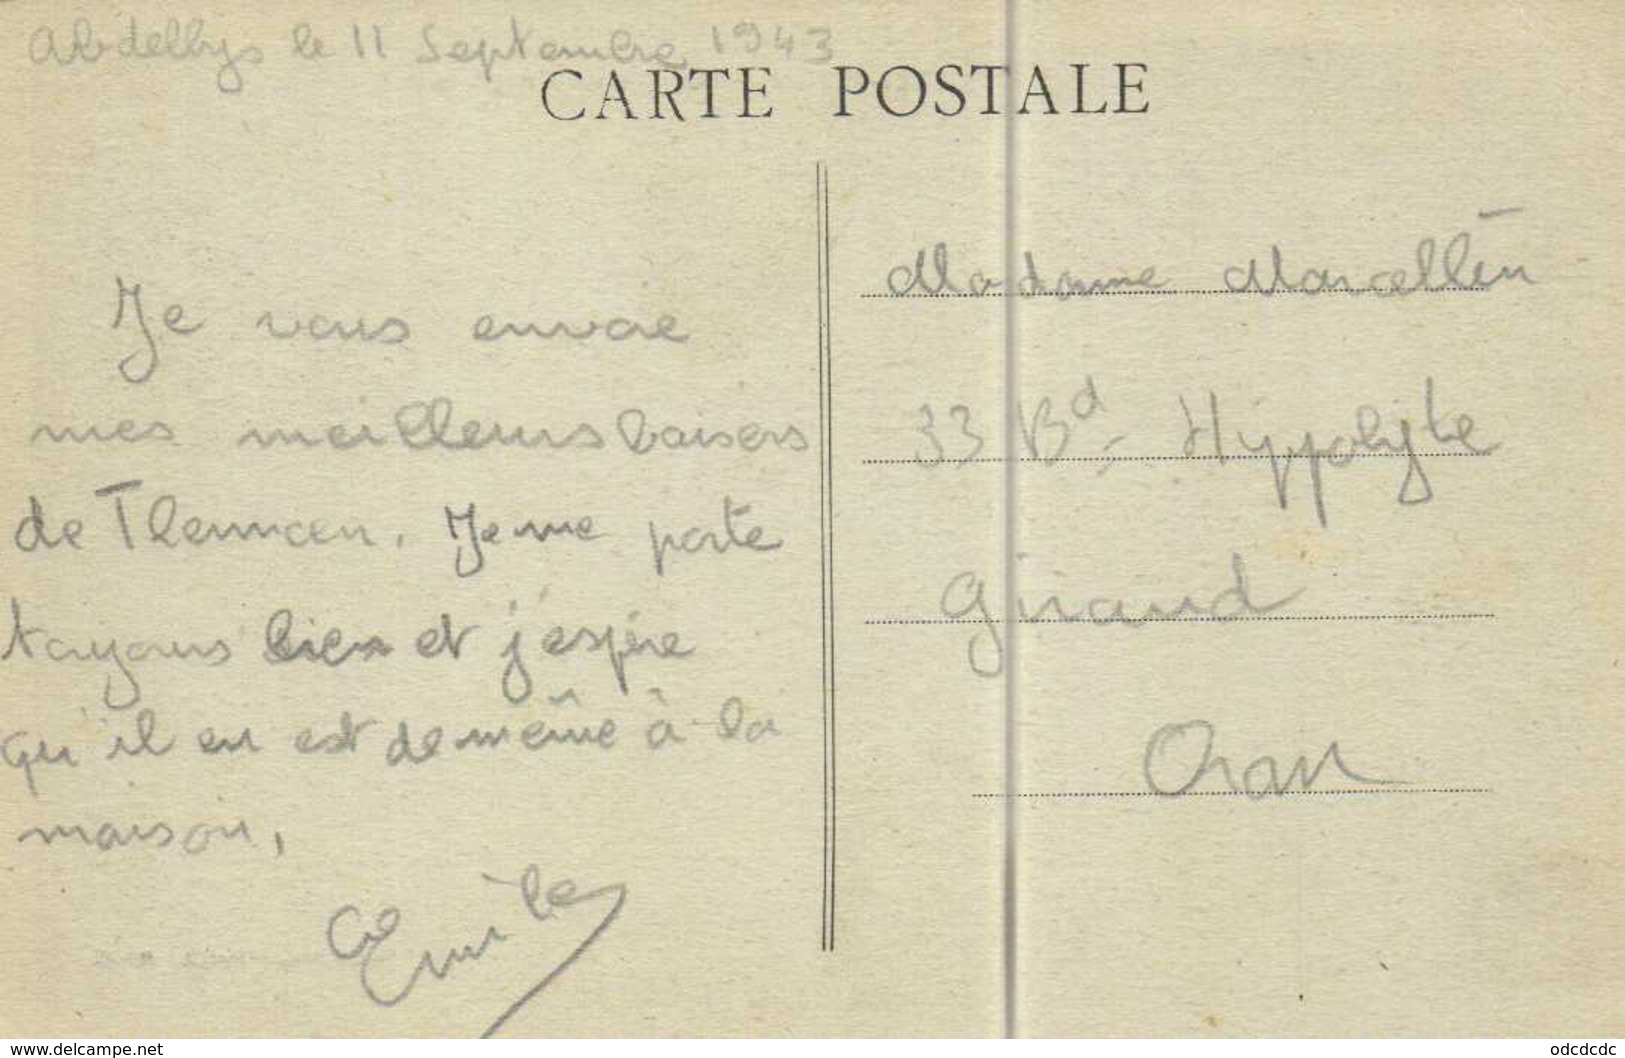 Abdellys le 11 Septembre 1943
CARTE POSTALE
Je vous envoie
mes meilleurs baisers
de Tlemcen. Je me porte
toujours bien et j'espère
qu'il en est de même à la
maison,
Emile
Madame Marcellin
33 Bd Hippolyte
Giraud
Oran
www.delcampe.net
odcdcdc